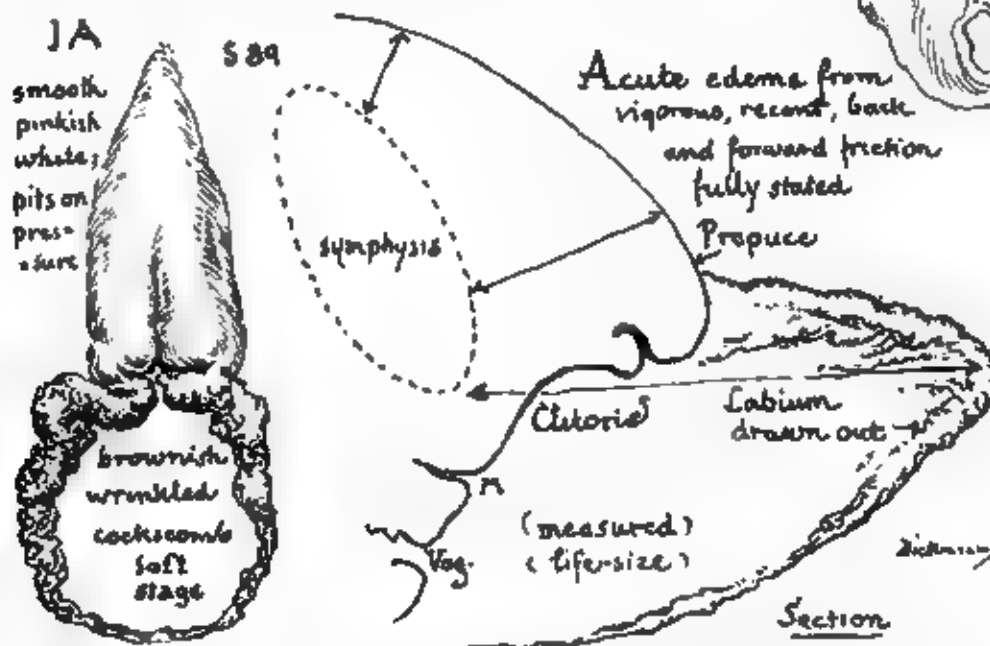 1A
smooth
pinkish
white;
pits on
pres-
-sure
brownish
wrinkled
cockscomb
soft
stage
S 89
symphysis
Acute edema from
vigorous, recent, back
and forward friction
fully stated
Prepuce
Clitoris
Labium
drawn out
M
Vag.
(measured)
(life-size)
Section